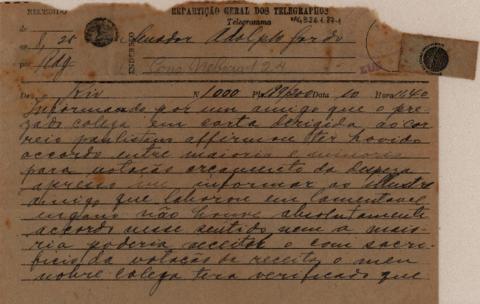 RECEBIDO
REPARTIÇÃO GERAL DOS TELEGRAPHOS
Telegramma
de
ás 8,25
por
ENDEREÇO
Senador Adolpho Gordo
Cons. Nebias 124
De Rio N 1000 Pls Data 10 Hora 1640
Informado por um amigo que o pre-
zado colega em carta dirigida ao Cor
reio paulistano affirmou ter havido
accordo entre maioria e minoria
para votação orçamento da despeza
apresso me informar ao illustre
amigo que laborou em lamentavel
engano não houve absolutamente
accordo nesse sentido nem a maio-
ria poderia acceitar o com sacri-
ficio da votação da receita o meu
nobre colega tera verificado que